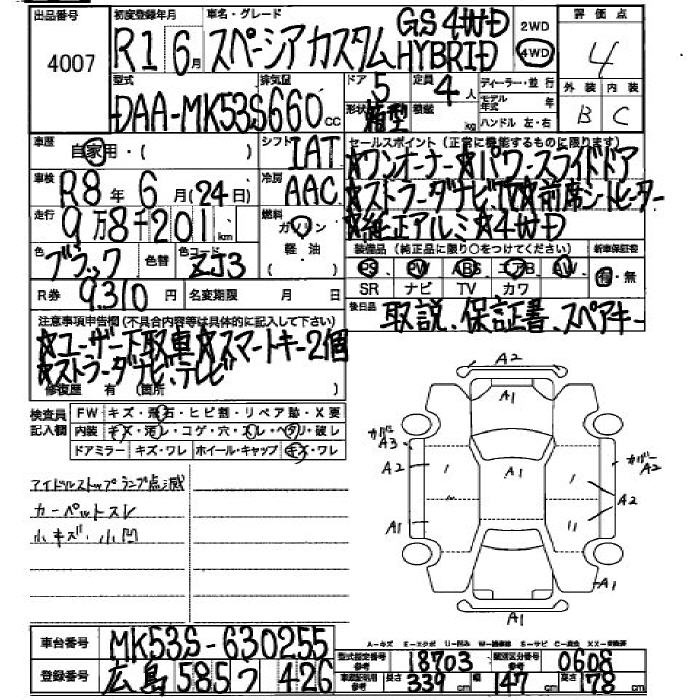 出品番号 初度登録年月 車名・グレード GS 4WD 2WD 評価点
4007 R1 6月 スペーシアカスタム HYBRID 4WD 4
型式 排気量 ドア 5 定員 4人 ディーラー・並行 外装 内装
DAA-MK53S 660cc 形状 箱型 積載 kg モデル年式 年 B C
ハンドル 左・右
車歴 自家用・( ) シフト IAT セールスポイント(正常に機能するものに限ります)
☆ワンオーナー☆パワースライドドア
車検 R8年6月(24日) 冷房 AAC ☆ストラーダナビTV☆前席シートヒーター
走行 9万8千201km 燃料 ガソリン・軽油・( ) ☆純正アルミ☆4WD
色 ブラック 色替 色コード ZJ3 装備品(純正品に限り○をつけてください) 新車保証書
PS PW ABS エアB AW 有・無
R券 9310円 名変期限 月 日 SR ナビ TV カワ
注意事項申告欄(不具合内容等は具体的に記入して下さい) 後日品 取説、保証書、スペアキー
☆ユーザー下取車☆スマートキー2個
☆ストラーダナビ、テレビ
修復歴 有 (箇所 )
検査員記入欄 FW キズ・飛石・ヒビ割・リペア跡・X要
内装 キズ・汚レ・コゲ・穴・スレ・ヘタリ・破レ
ドアミラー キズ・ワレ ホイール・キャップ キズ・ワレ
アイドルストップランプ点滅
カーペットスレ
小キズ・小凹
A2
A1
カバー A3
カバー A2
A2 A1 A2
A1
A1
A1
A-キズ
車台番号 MK53S-630255 型式指定番号 参考 18703 類別区分番号 参考 0608
登録番号 広島 585 つ 426 車検証記載 参考 長さ 339cm 幅 147cm 高さ 178cm